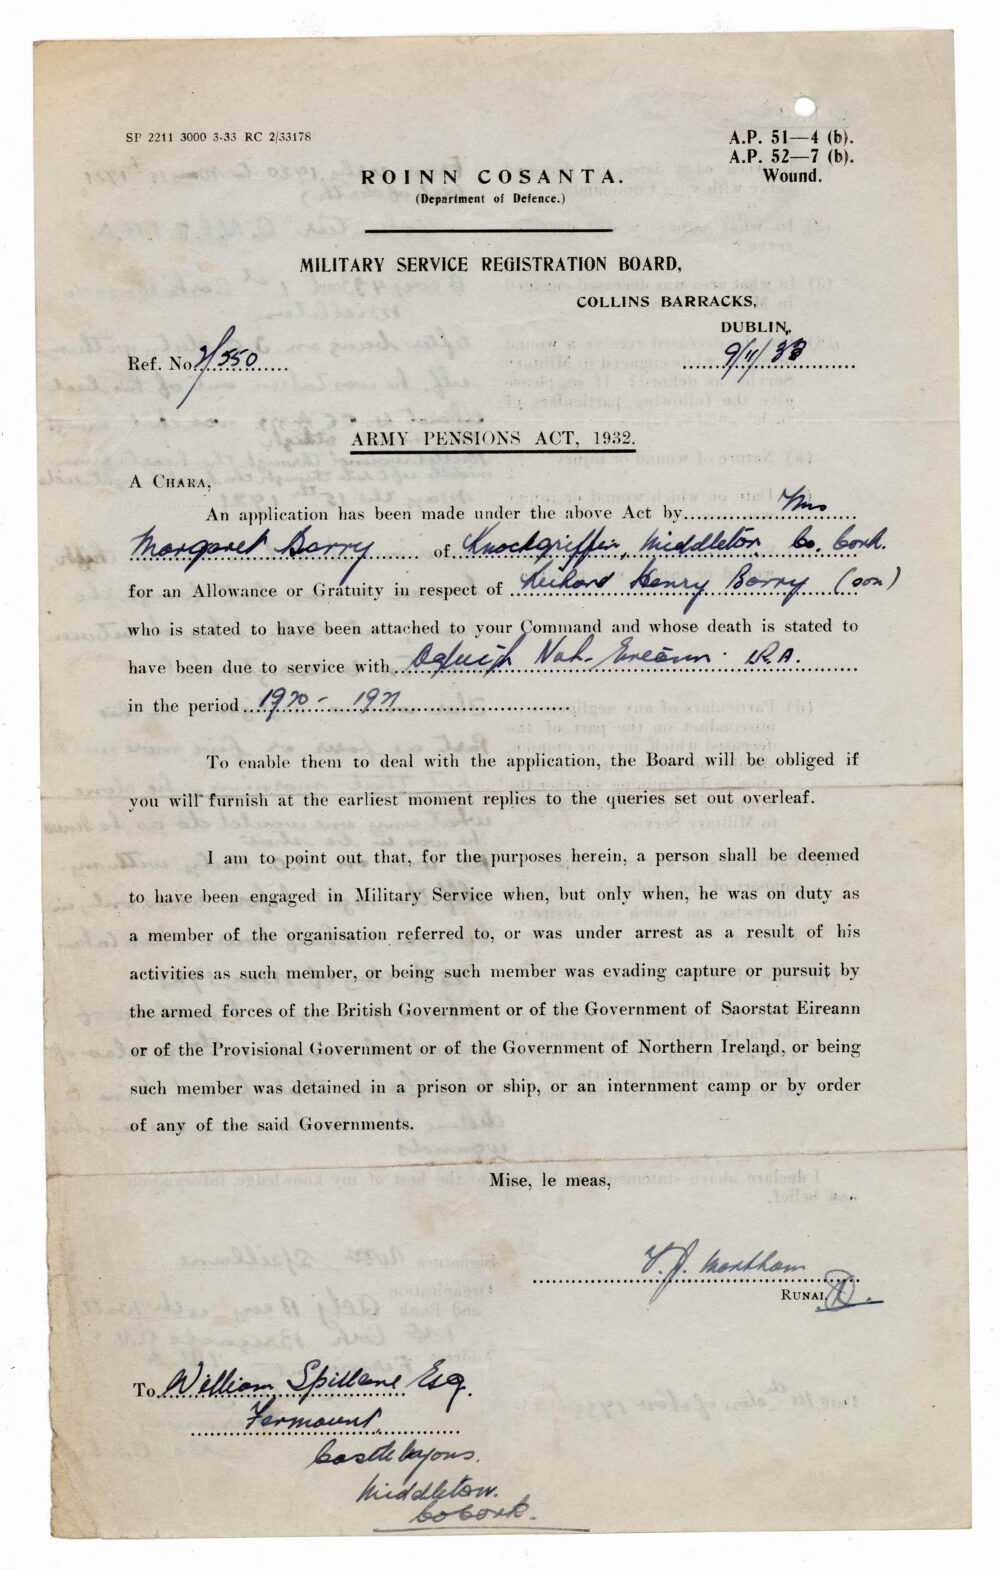 SP 2211 3000 3-33 RC 2/33178
A.P. 51—4 (b).
A.P. 52—7 (b).
Wound.
ROINN COSANTA.
(Department of Defence.)
MILITARY SERVICE REGISTRATION BOARD,
COLLINS BARRACKS,
DUBLIN,
Ref. No. 2/550
9/11/33
ARMY PENSIONS ACT, 1932.
A CHARA,
An application has been made under the above Act by Mrs
Margaret Barry of Knockgriffin, Middleton, Co. Cork.
for an Allowance or Gratuity in respect of Richard Henry Barry (son)
who is stated to have been attached to your Command and whose death is stated to
have been due to service with Oglaigh Nah. Eireann. I.R.A.
in the period 1920 - 1921
To enable them to deal with the application, the Board will be obliged if
you will furnish at the earliest moment replies to the queries set out overleaf.
I am to point out that, for the purposes herein, a person shall be deemed
to have been engaged in Military Service when, but only when, he was on duty as
a member of the organisation referred to, or was under arrest as a result of his
activities as such member, or being such member was evading capture or pursuit by
the armed forces of the British Government or of the Government of Saorstat Eireann
or of the Provisional Government or of the Government of Northern Ireland, or being
such member was detained in a prison or ship, or an internment camp or by order
of any of the said Governments.
Mise, le meas,
RUNAI.
To William Spillane Esq.
Fermount,
Castlelyons.
Middleton.
Co Cork.